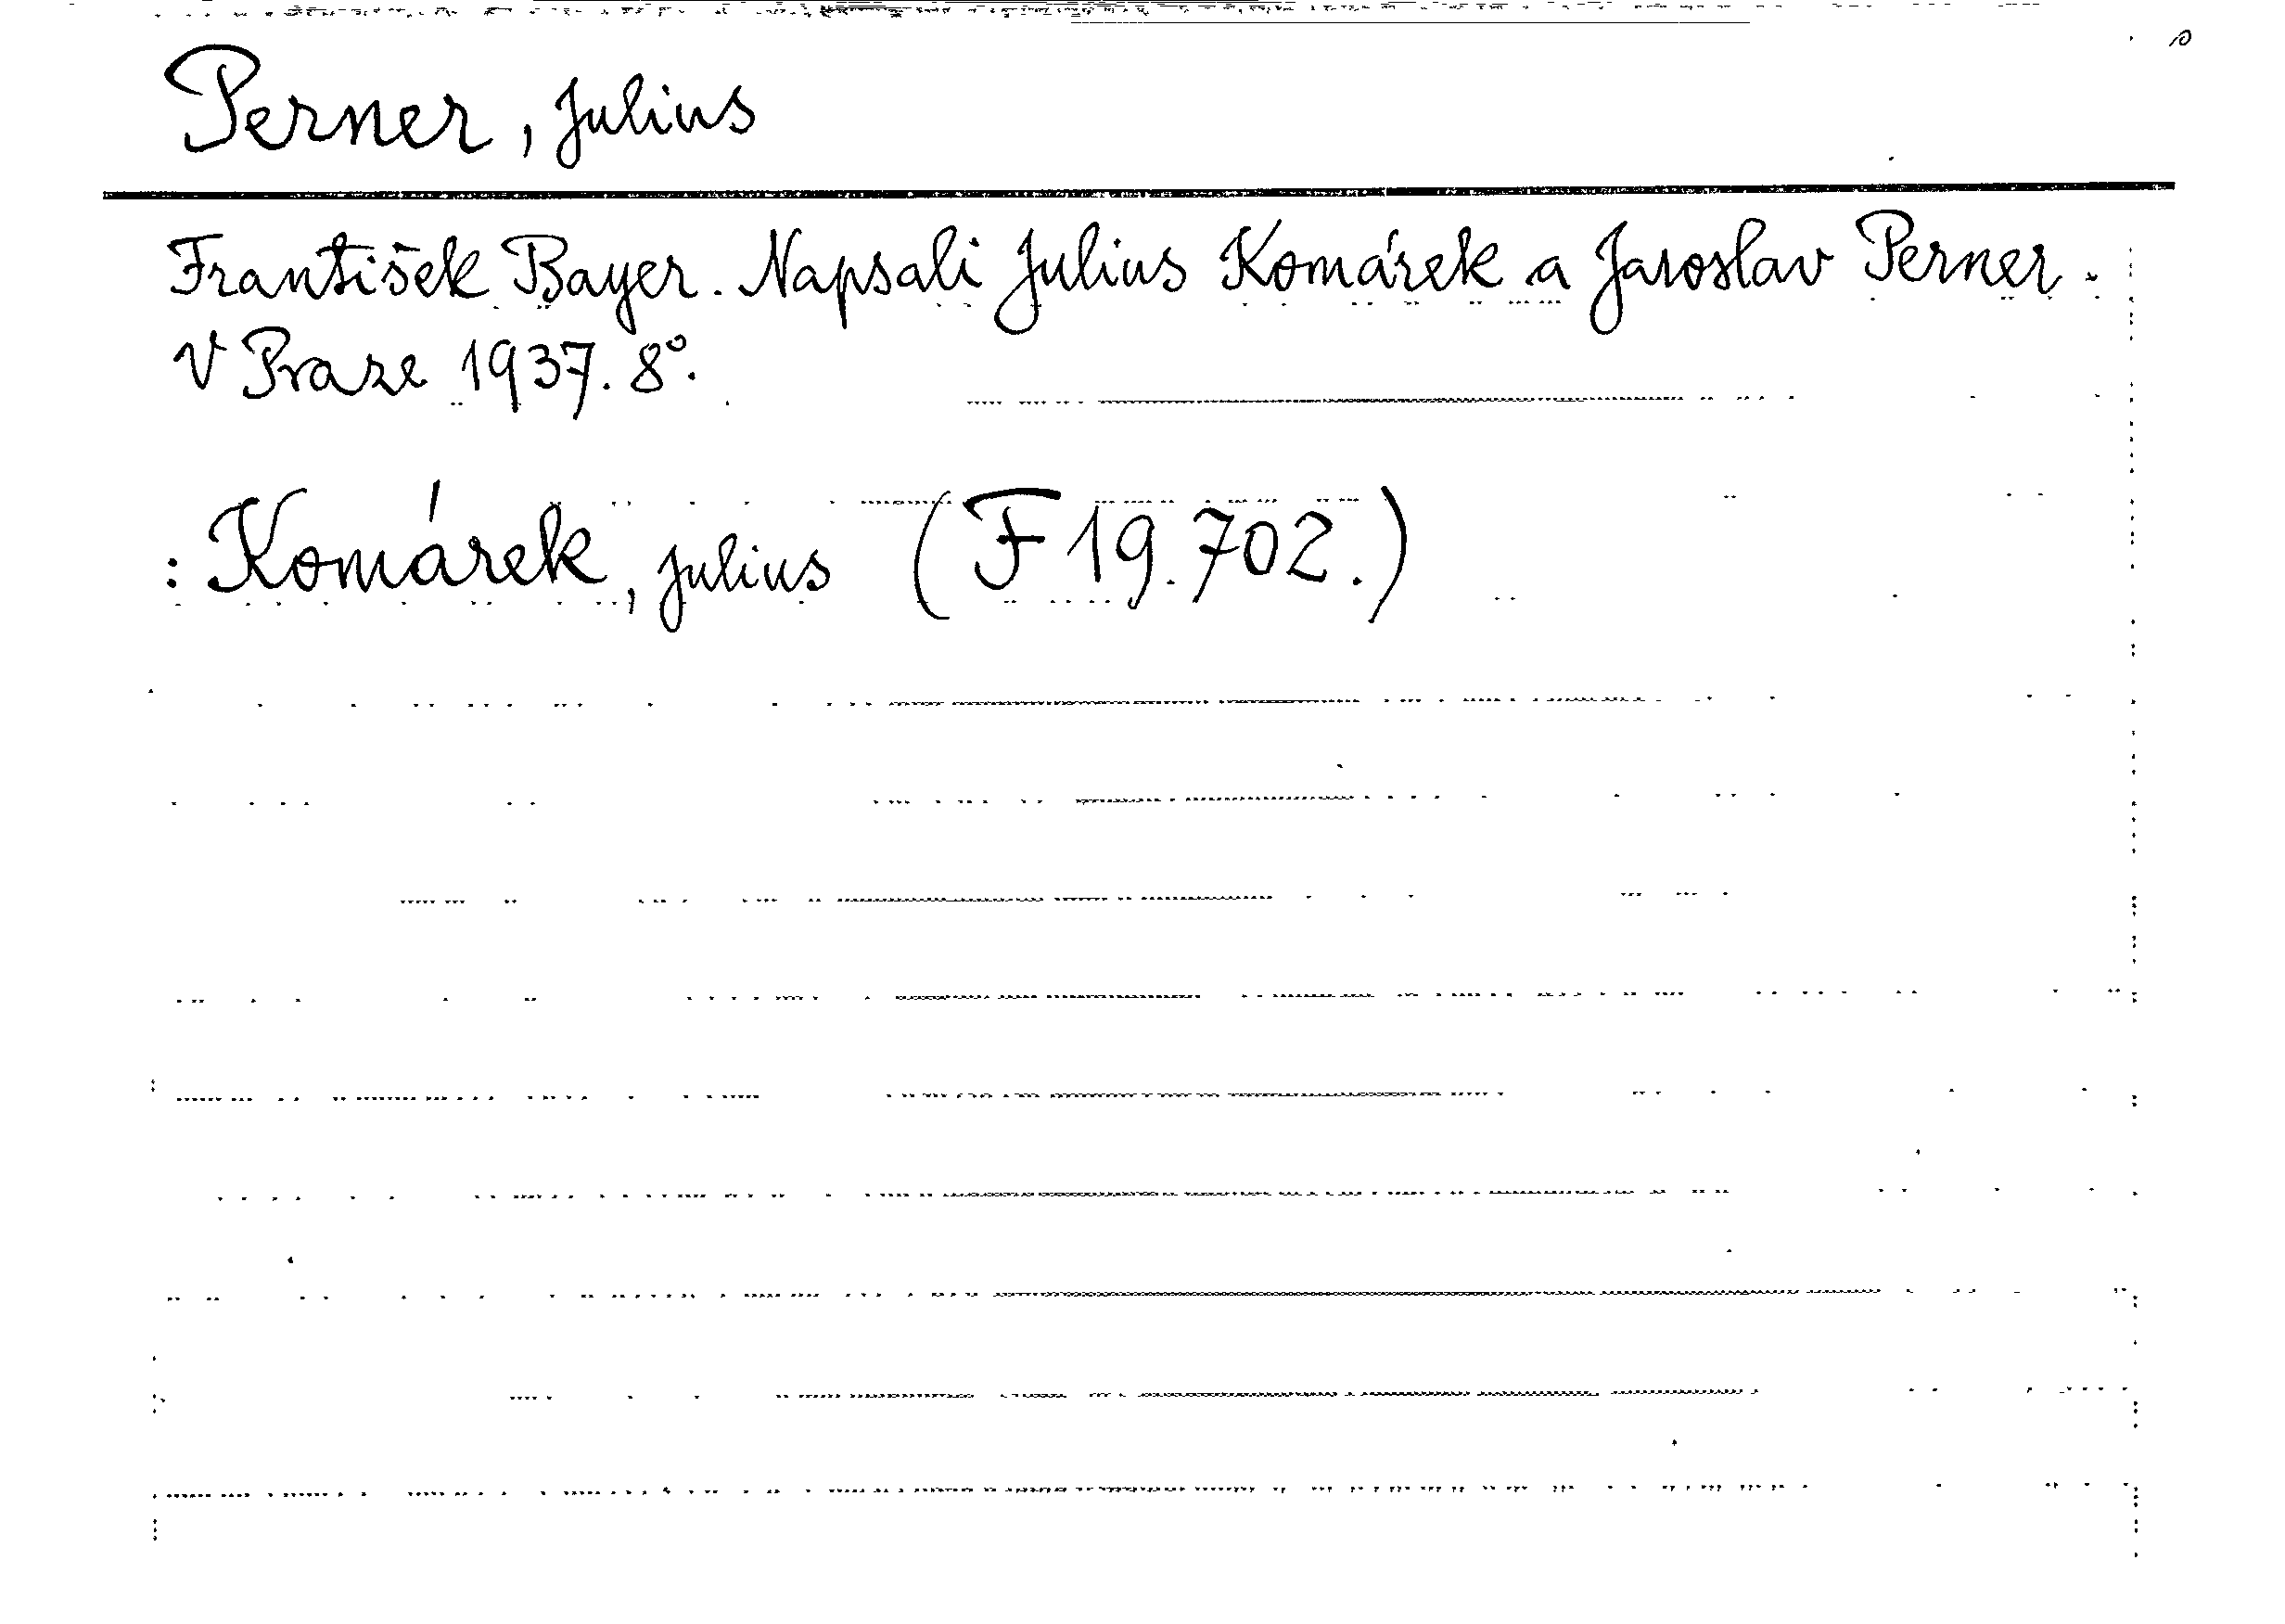 Perner, Julius
František Bayer. Napsali Julius Komárek a Jaroslav Perner.
V Praze 1937. 8°.
: Komárek, Julius (F 19.702.)